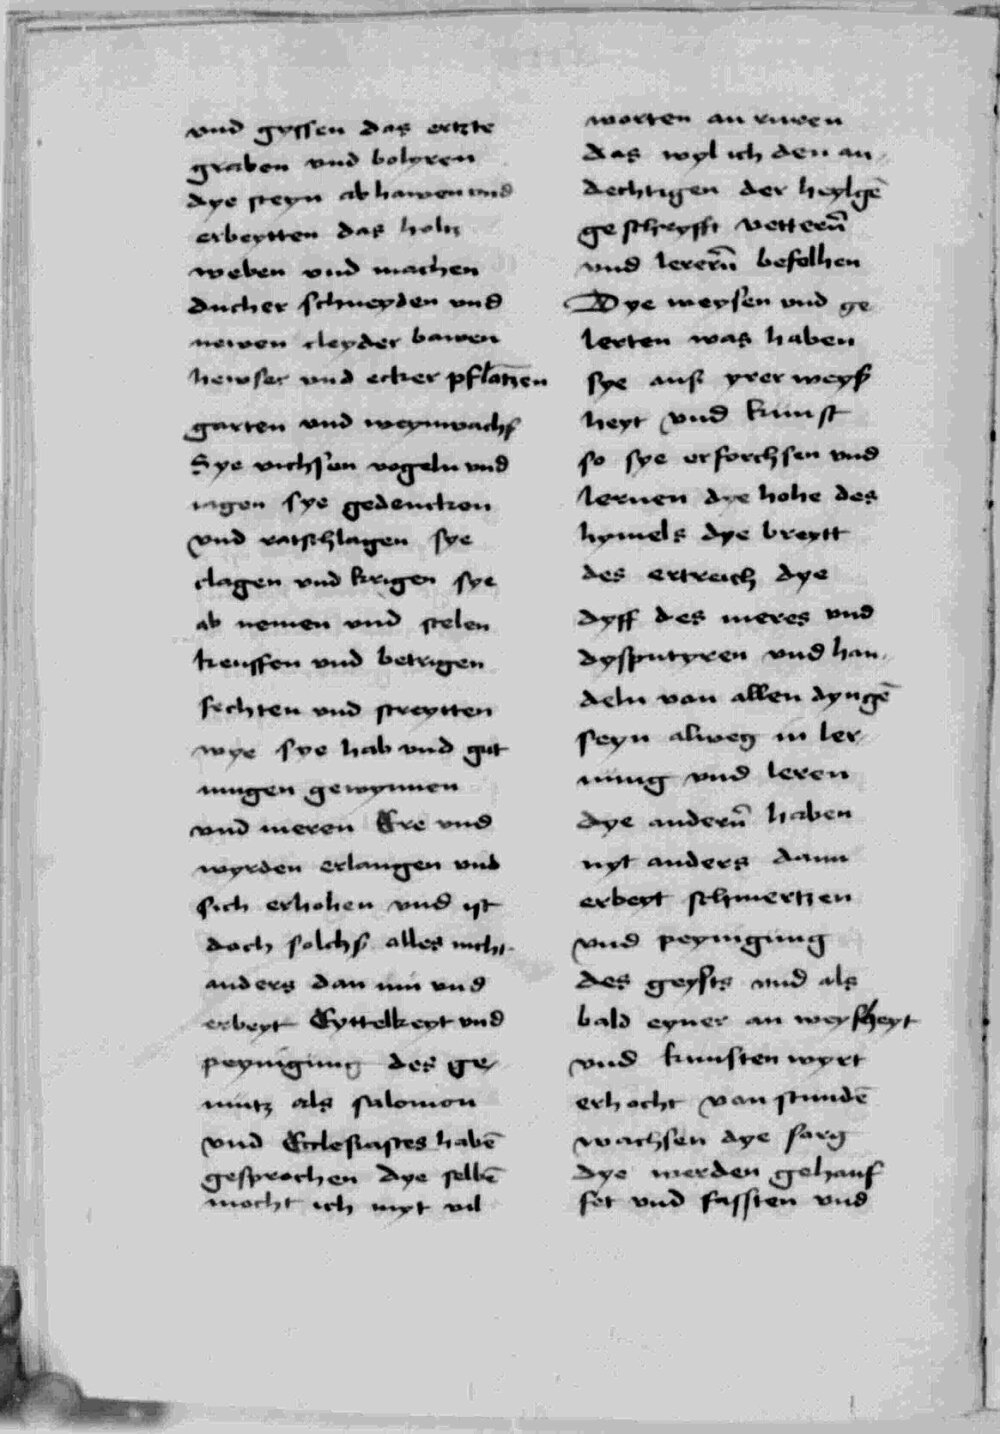 vnd gyssen das ertzte
graben vnd bolyren
dye steyn ab hawen vnd
erbeytten das holtz
weben vnd machen
ducher schneyden vnd
newen cleyder bawen
hewser vnd ecker pflātzen
garten vnd weynwachß
Sye vichsen vogeln vnd
iagen sye gedencken
vnd ratschlagen sye
clagen vnd krigen sye
ab nemen vnd stelen
keuffen vnd betrigen
fechten vnd streytten
wye sye hab vnd gut
mugen gewynnen
vnd meren Ere vnd
wyrden erlangen vnd
sich erhohen vnd ist
doch solchß alles nicht
anders dan mu vnd
erbeyt Eyttelkeyt vnd
peynigung des ge-
mutz als salomon
vnd Ecclesiastes habē
gesprochen dye selbē
mocht ich myt vil
worten an ruren
das wyl ich den an-
dechtigen der heylgē
geschryfft vetterñ
vnd lererñ befelhen
Dye weysen vnd ge
lerten was haben
sye auß yrer weyß
heyt vnd kunst
so sye erforchsen vnd
lernen dye hohe des
hymels dye breytt
des ertreich dye
dyff des meres vnd
dysputyren vnd han-
deln von allen dyngē
seyn alweg in ler-
nung vnd leren
dye anderñ haben
nyt anders dann
erbeyt schmertzen
vnd peynigung
des geysts vnd als
bald eyner an weyßheyt
vnd kunsten wyrt
erhocht von stundē
wachsen dye sorg
dye werden gehauf
fet vnd fassten vnd